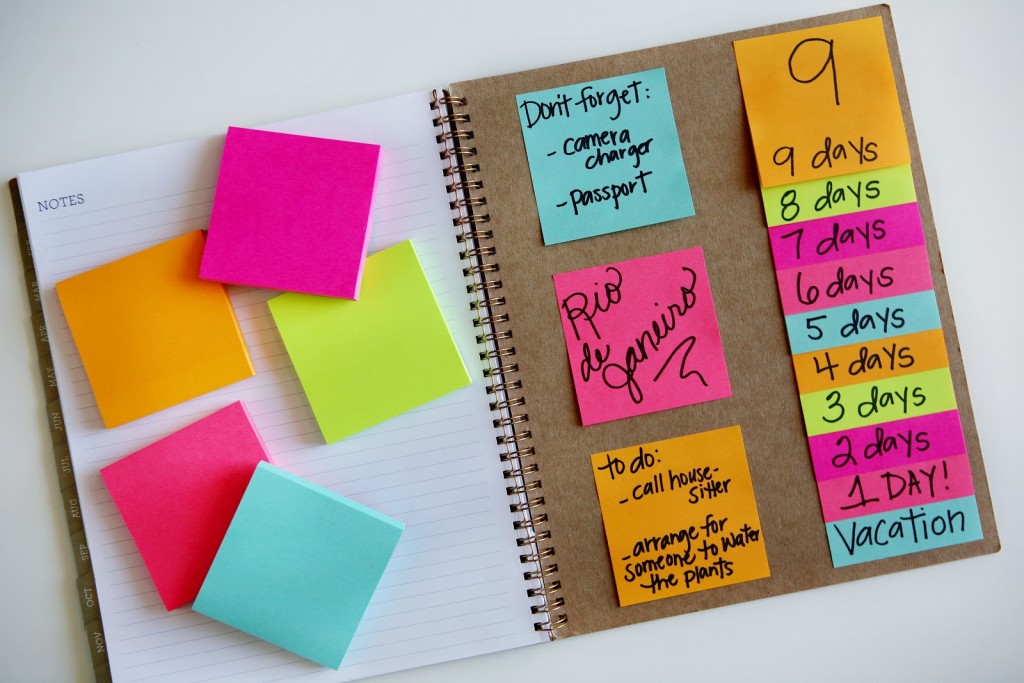 NOTES
MAR
APR
MAY
JUN
JUL
AUG
SEP
OCT
NOV
Don't forget:
- camera
charger
- passport
Rio
de
Janeiro
to do:
- call house-
sitter
- arrange for
someone to water
the plants
9
9 days
8 days
7 days
6 days
5 days
4 days
3 days
2 days
1 DAY!
Vacation